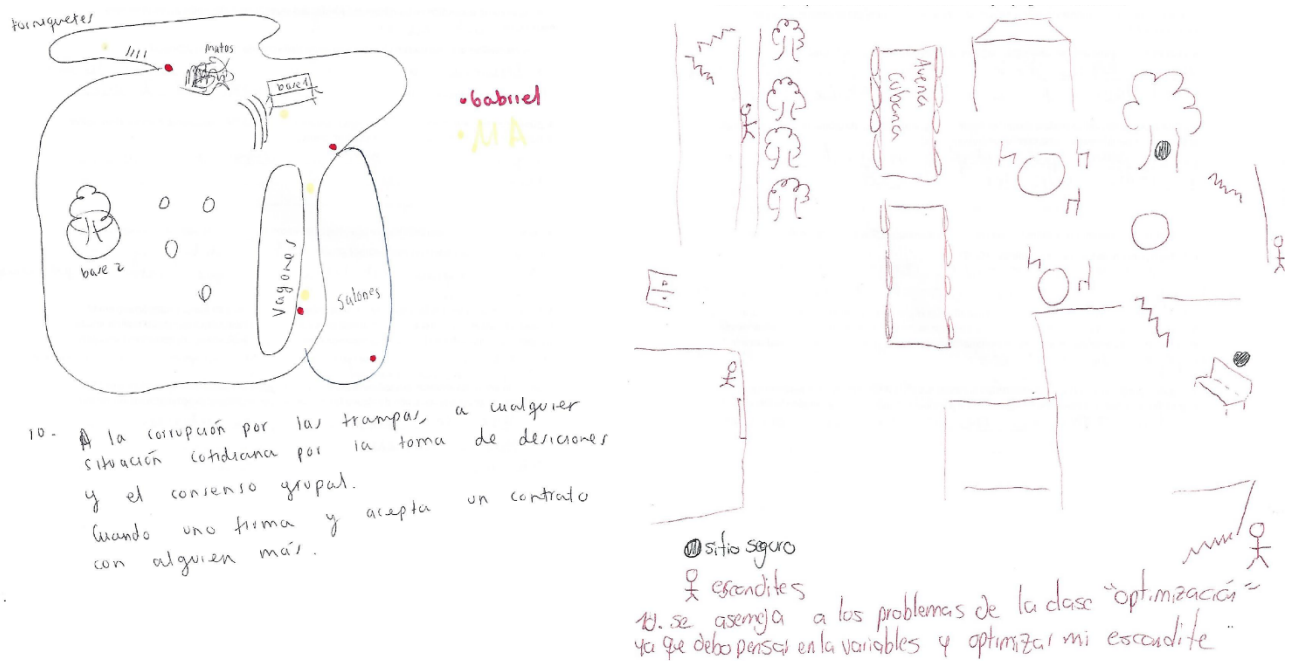 torniquetes
matos
base 1
• Gabriel
• MA
base 2
Vagones
Salones
10. A la corrupción por las trampas, a cualquier
situación cotidiana por la toma de desiciones
y el consenso grupal.
Cuando uno firma y acepta un contrato
con alguien más.
Avena
Cubana
sitio seguro
escondites
10. se asemeja a los problemas de la clase "optimización"
ya qe debo pensar en la variables y optimizar mi escondite